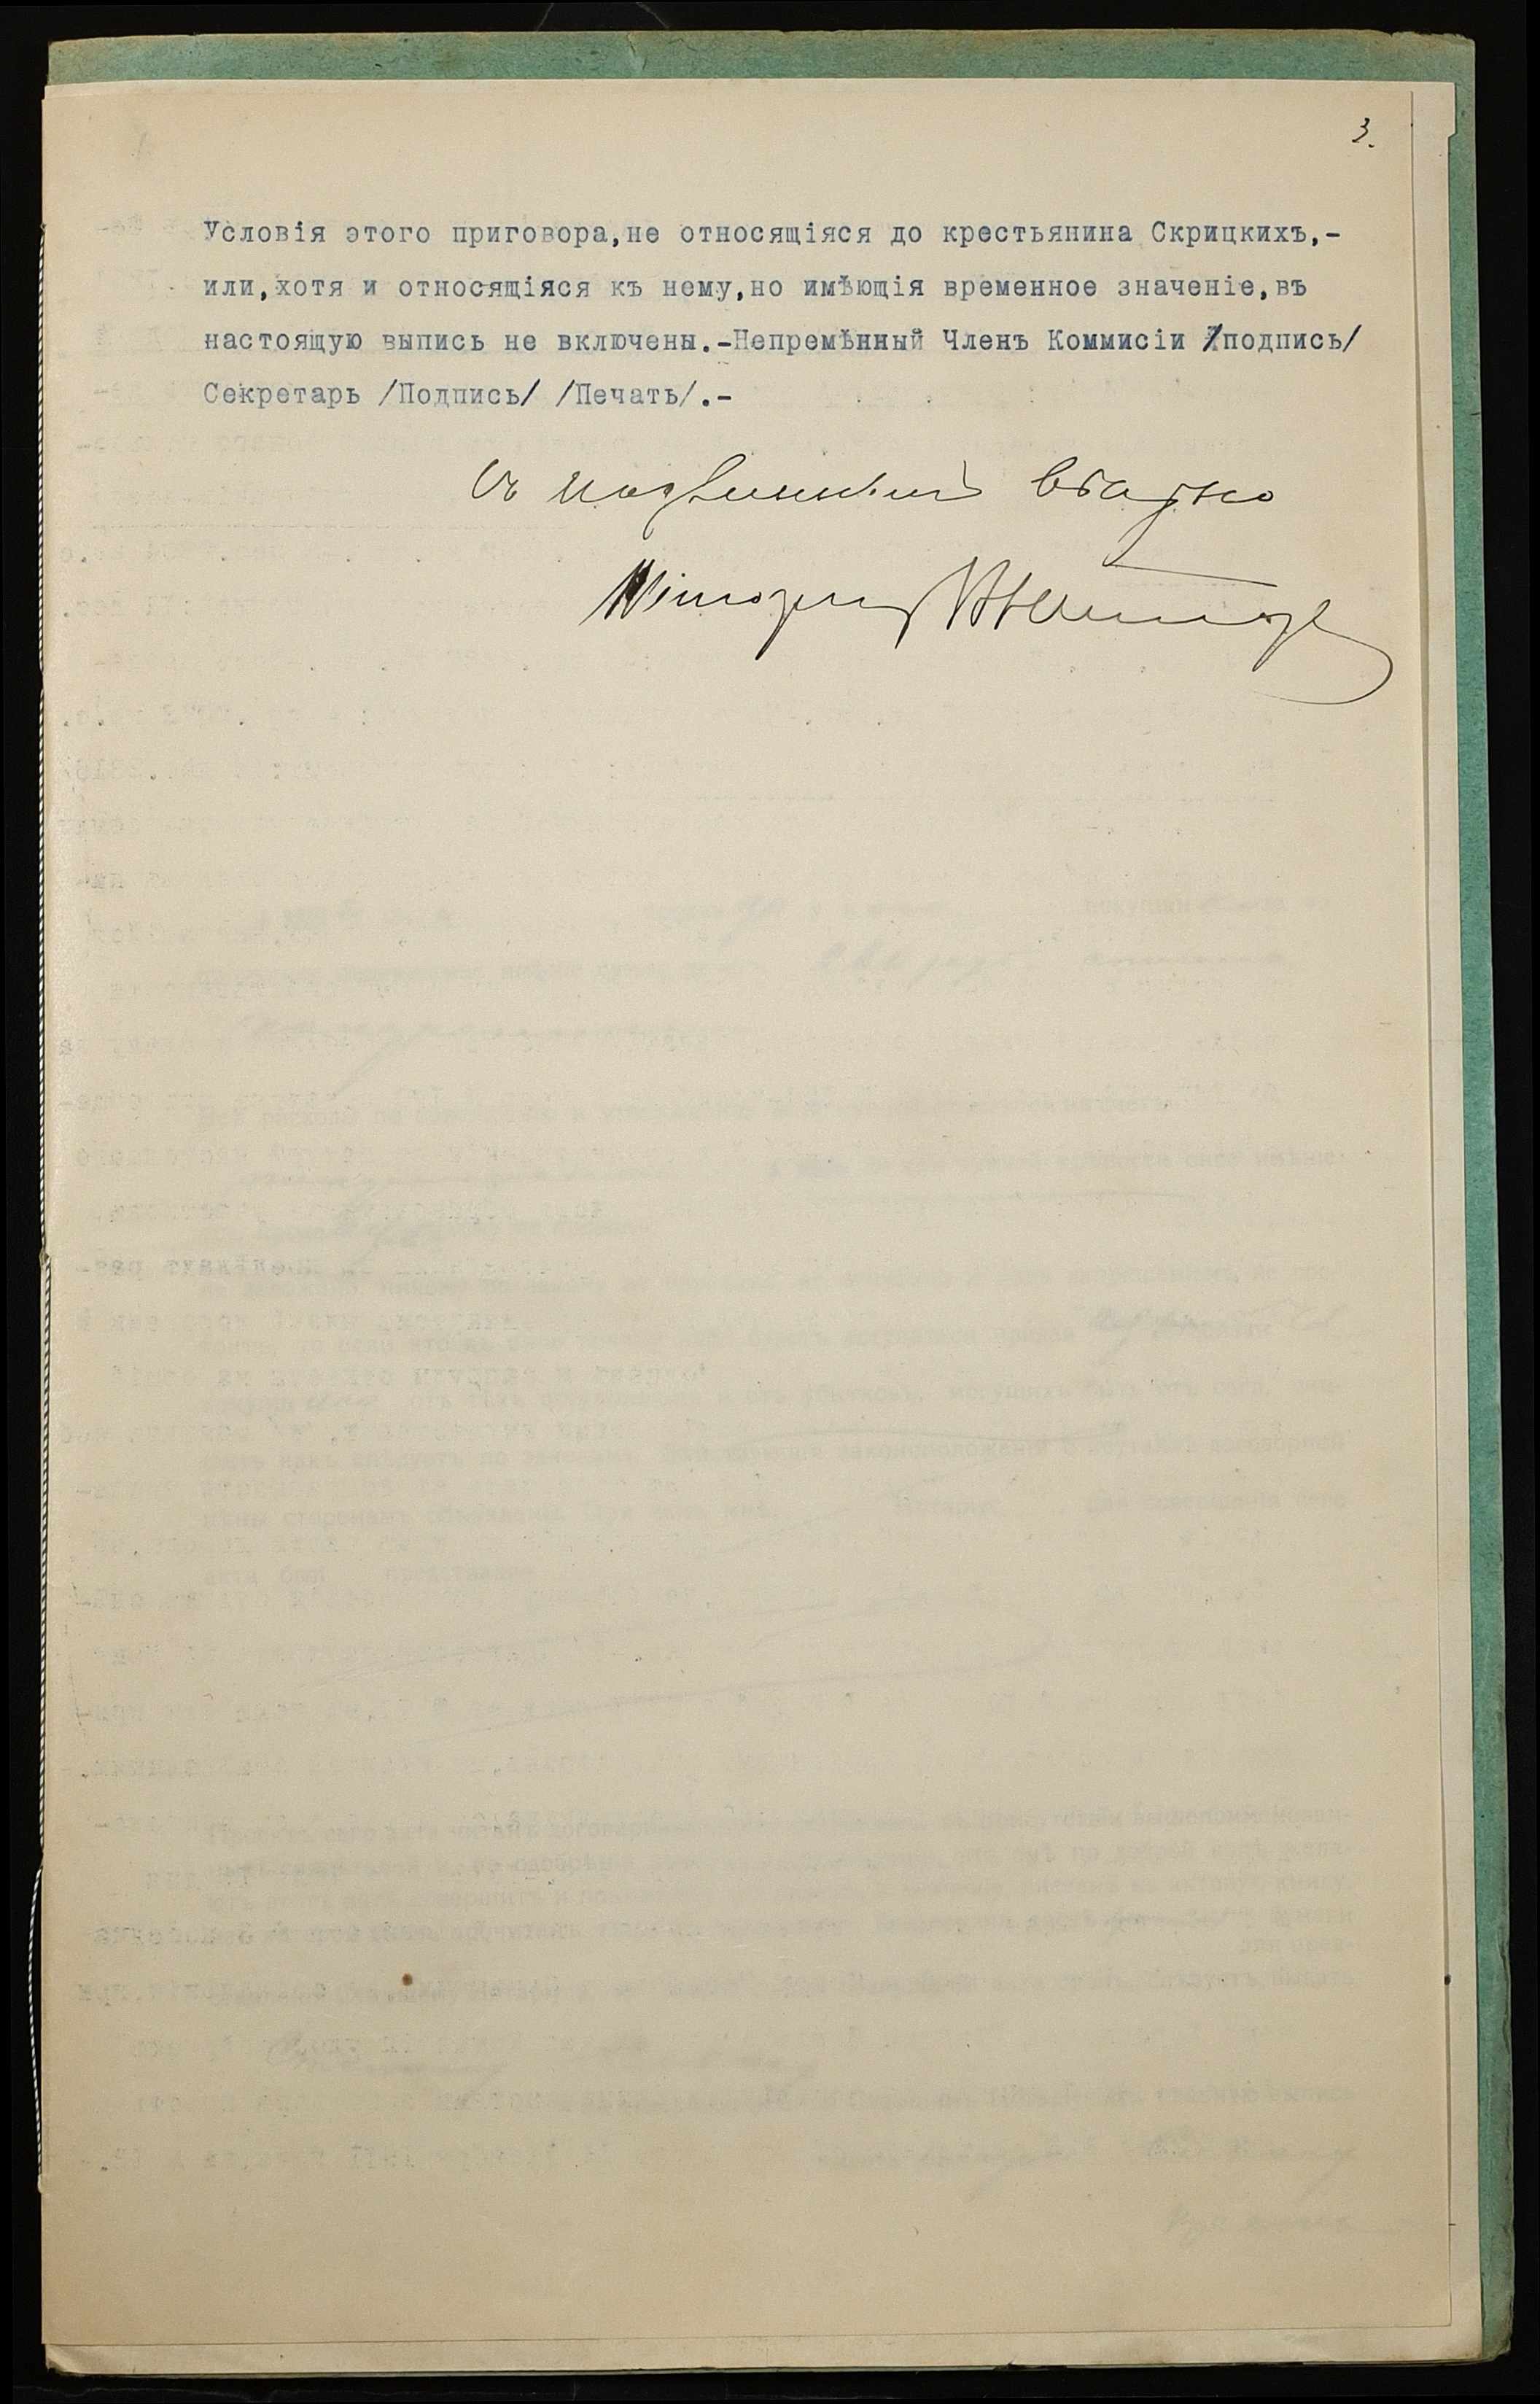 3.
Условія этого приговора,не относящіяся до крестьянина Скрицкихъ,-
или,хотя и относящіяся къ нему,но имѣющія временное значеніе,въ
настоящую выпись не включены.-Непремѣнный Членъ Коммисіи /подпись/
Секретарь /Подпись/ /Печать/.-
Съ подлиннымъ вѣрно